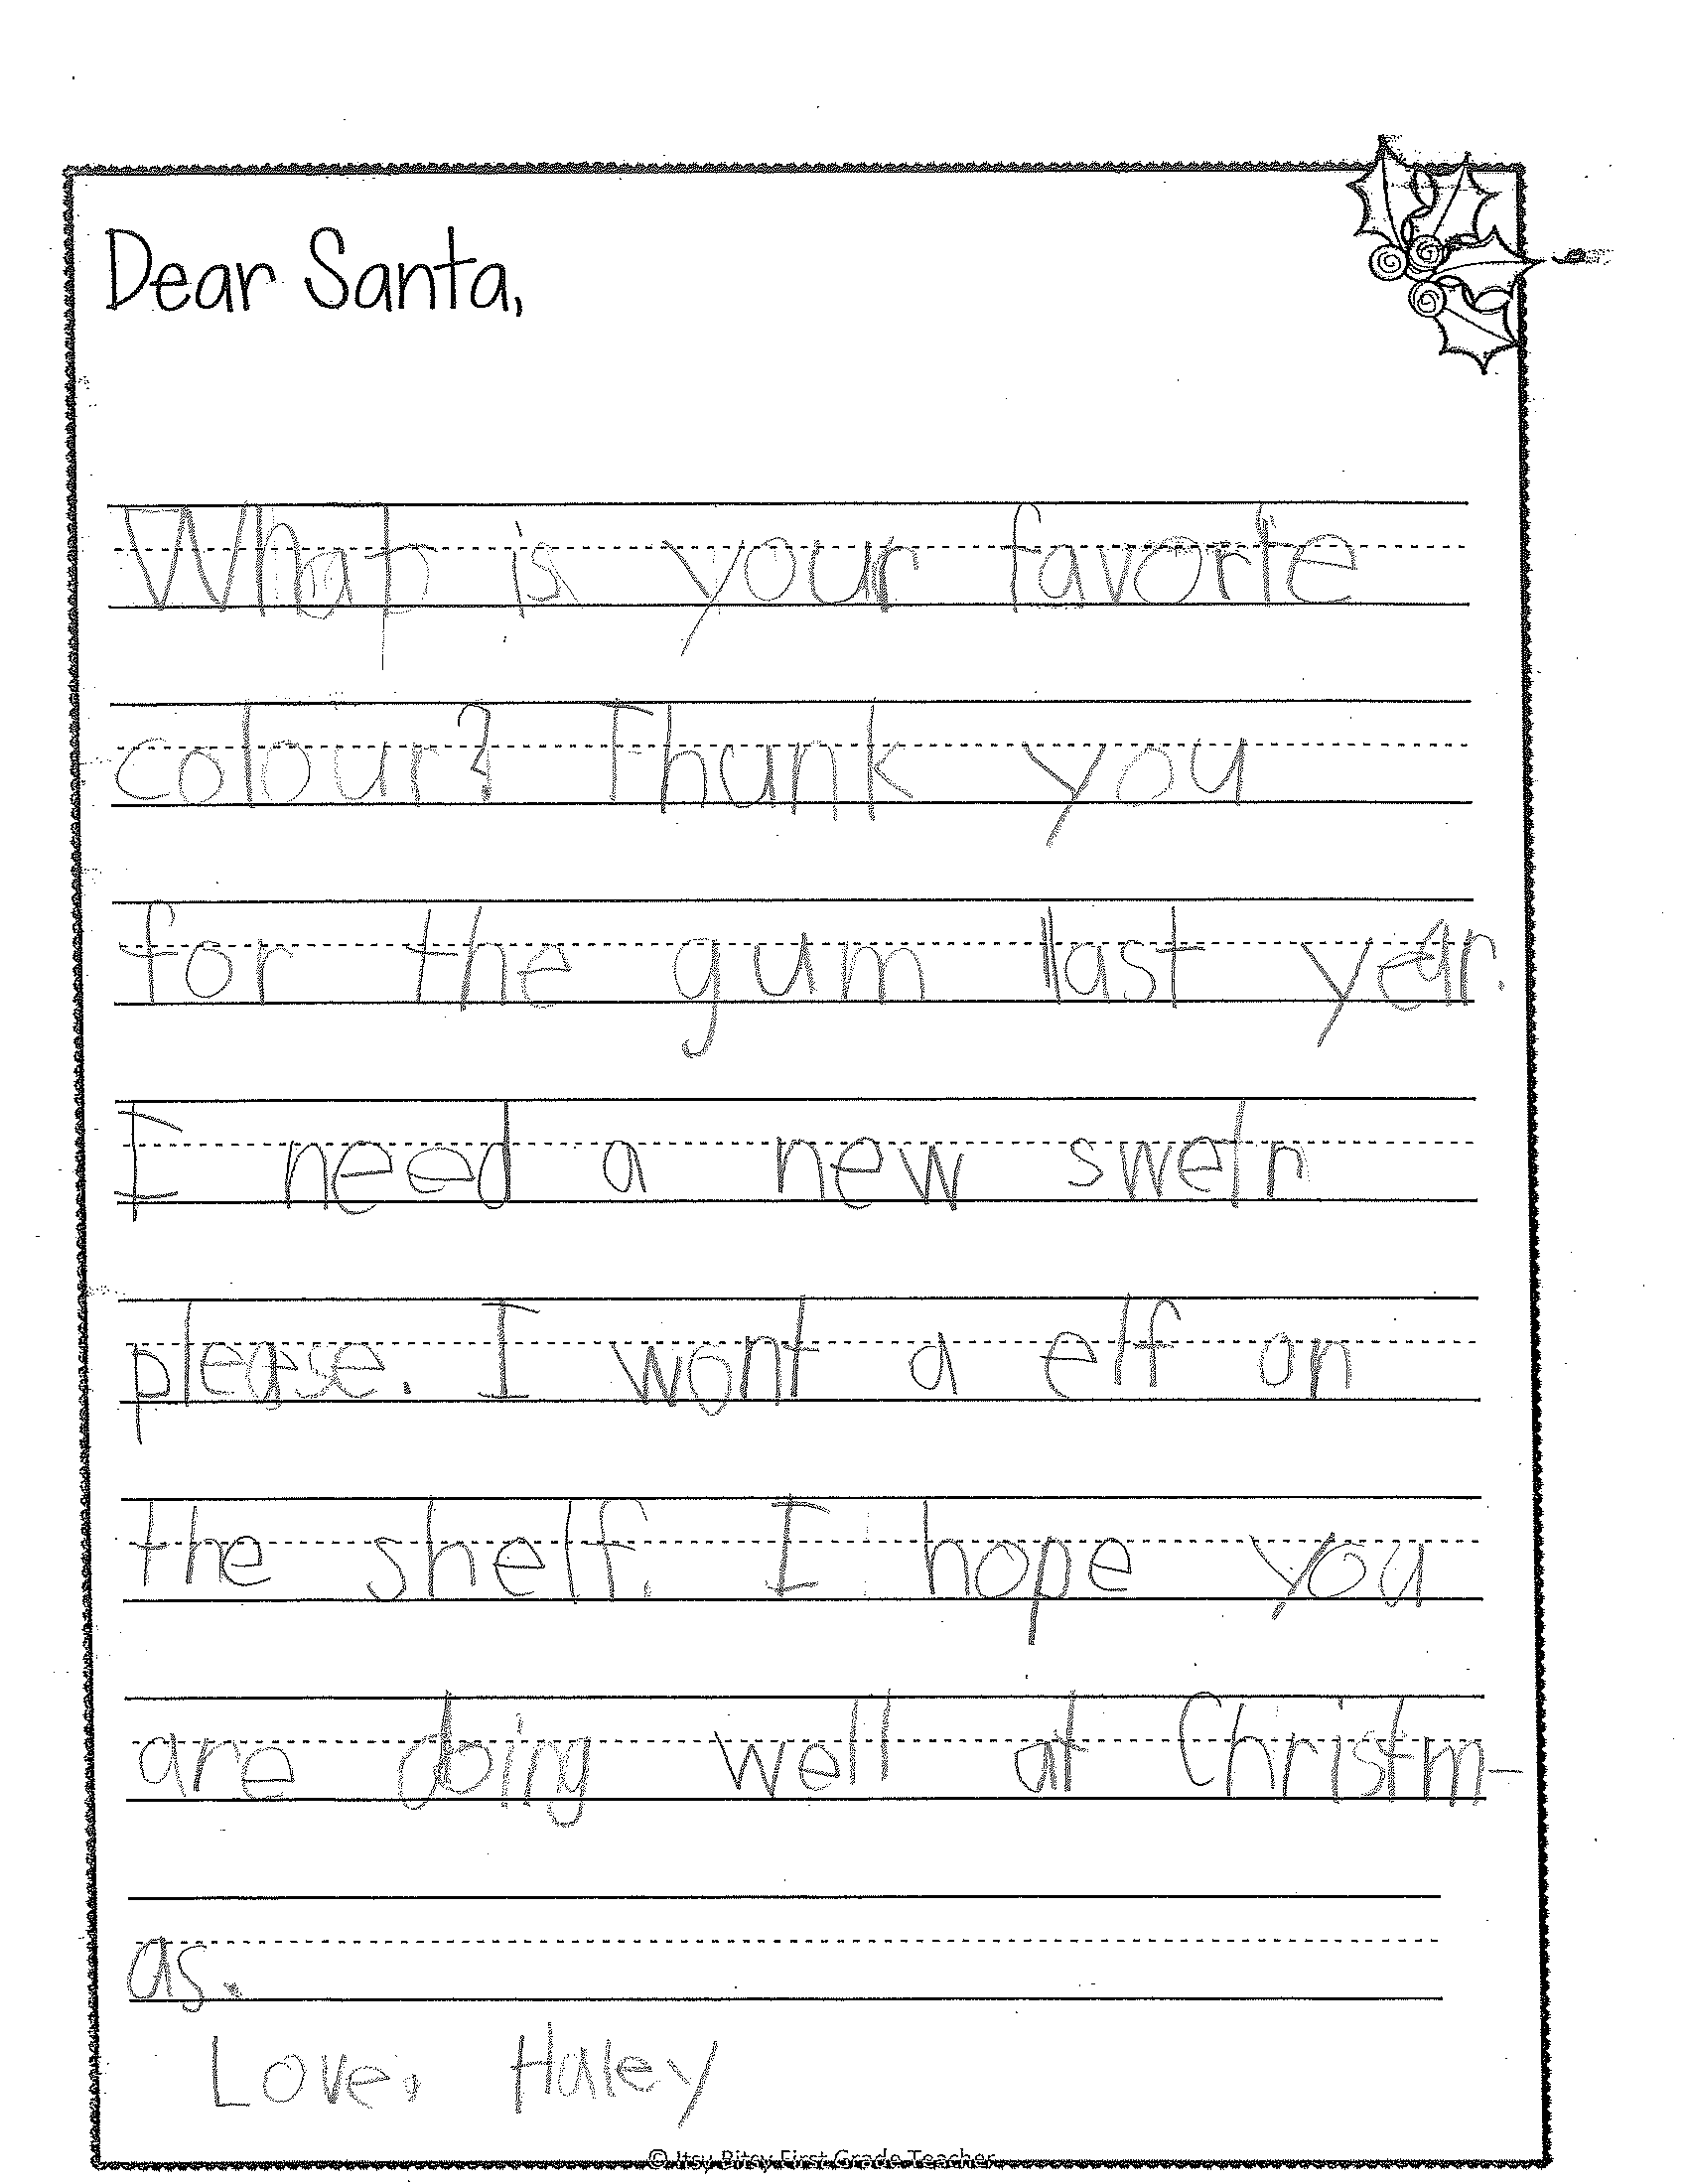 Dear Santa,
What is your favorte
colour? Thank you
for the gum last year.
I need a new swetr
please. I wont a elf on
the shelf. I hope you
are doing well at Christm-
as.
Love, Haley
© Itsy Bitsy First Grade Teacher